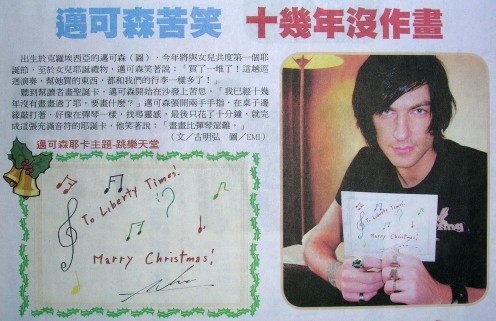 邁可森苦笑 十幾年沒作畫
出生於克羅埃西亞的邁可森（圖），今年將與女兒共度第一個耶
誕節，至於女兒耶誕禮物，邁可森笑著說：「買了一堆了！這趟巡
迴演奏，幫她買的東西，都和我們的行李一樣多了！」
聽到幫讀者畫聖誕卡，邁可森開始在沙發上苦思，「我已經十幾
年沒有畫畫過了耶，要畫什麼？」邁可森張開兩手手指，在桌子邊
緣敲打著，好像在彈琴一樣，找尋靈感，最後只花了十分鐘，就完
成這張充滿音符的耶誕卡，他笑著說：「畫畫比彈琴還難。」
（文／古明弘 圖／EMI）
邁可森耶卡主題-跳樂天堂
To Liberty Times!
Marry Christmas!
To Liberty Times!
Marry Christmas!